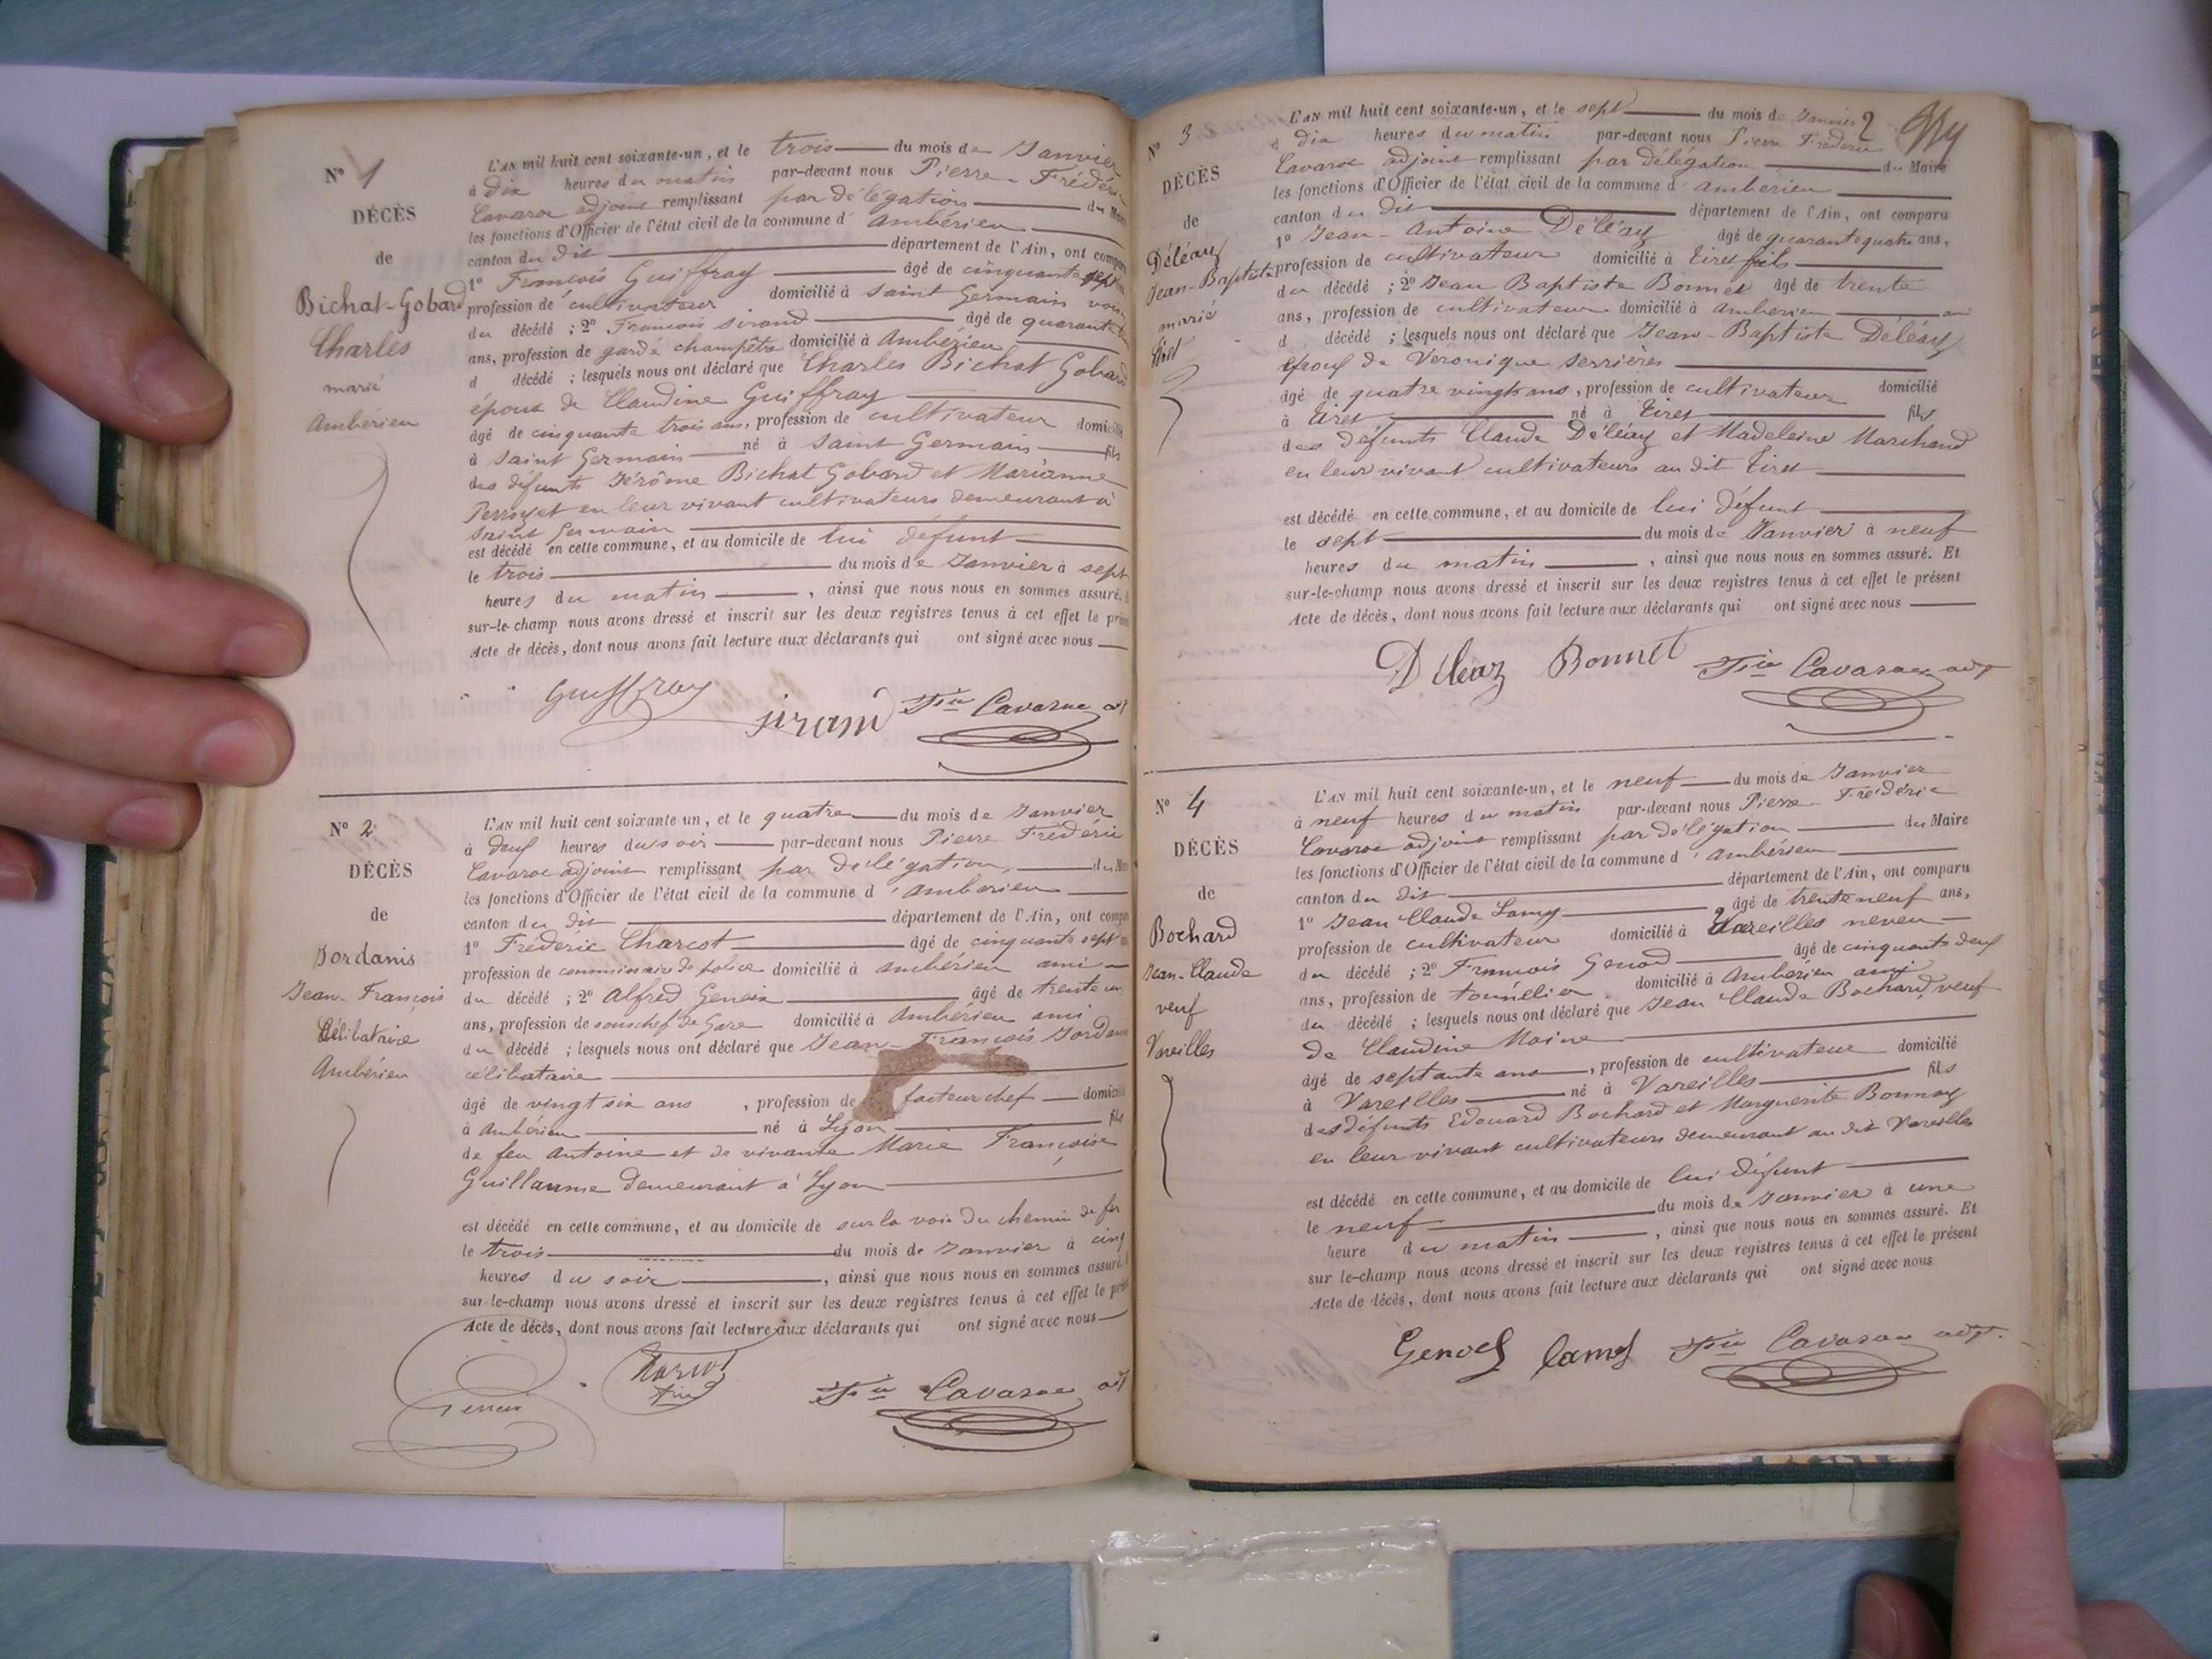 N° 1
DÉCÈS
de
Bichat-Gobard
Charles
marié
Ambérieu
L'AN mil huit cent soixante-un, et le trois du mois de Janvier
à dix heures du matin par-devant nous Pierre-Frédéric
Cavaroc adjoint remplissant par délégation du Maire
les fonctions d'Officier de l'état civil de la commune d'Ambérieu
canton du dit département de l'Ain, ont comparu
1° François Guiffray âgé de cinquante sept
profession de cultivateur domicilié à Saint Germain voisin
du décédé ; 2° François Sirand âgé de quarante
ans, profession de garde champêtre domicilié à Ambérieu
d décédé ; lesquels nous ont déclaré que Charles Bichat Gobard
époux de Claudine Guiffray
âgé de cinquante trois ans, profession de cultivateur domicilié
à Saint Germain né à Saint Germain fils
des défunts Jérôme Bichat Gobard et Marianne
Perroyet en leur vivant cultivateurs demeurant à
Saint Germain
est décédé en cette commune, et au domicile de lui défunt
le trois du mois de Janvier à sept
heures du matin, ainsi que nous nous en sommes assuré.
sur-le-champ nous avons dressé et inscrit sur les deux registres tenus à cet effet le présent
Acte de décès, dont nous avons fait lecture aux déclarants qui ont signé avec nous
Guiffray
Sirand Fric Cavaroc adj
N° 2
DÉCÈS
de
Jordanis
Jean-François
Célibataire
Ambérieu
L'AN mil huit cent soixante un, et le quatre du mois de Janvier
à deux heures du soir par-devant nous Pierre Frédéric
Cavaroc adjoint remplissant par délégation du Maire
les fonctions d'Officier de l'état civil de la commune d'Ambérieu
canton du dit département de l'Ain, ont comparu
1° Frédéric Charcot âgé de cinquante sept
profession de commissaire de police domicilié à Ambérieu ami
du décédé ; 2° Alfred Genein âgé de trente un
ans, profession de sous chef de Gare domicilié à Ambérieu ami
du décédé ; lesquels nous ont déclaré que Jean-François Jordanis
célibataire
âgé de vingt six ans, profession de facteur chef domicilié
à Ambérieu né à Lyon fils
de feu Antoine et de vivante Marie Françoise
Guillaume demeurant à Lyon
est décédé en cette commune, et au domicile de sur la voie du chemin de fer
le trois du mois de Janvier à cinq
heures du soir, ainsi que nous nous en sommes assuré.
sur-le-champ nous avons dressé et inscrit sur les deux registres tenus à cet effet le présent
Acte de décès, dont nous avons fait lecture aux déclarants qui ont signé avec nous
Charcot
Fric Cavaroc adj
2
N° 3
DÉCÈS
de
Déléaz
Jean-Baptiste
marié
Tiret
L'AN mil huit cent soixante-un, et le sept du mois de Janvier
à dix heures du matin par-devant nous Pierre Frédéric
Cavaroc adjoint remplissant par délégation du Maire
les fonctions d'Officier de l'état civil de la commune d'Ambérieu
canton du dit département de l'Ain, ont comparu
1° Jean-Antoine Déléaz âgé de quarante quatre ans,
profession de cultivateur domicilié à Tiret fils
du décédé ; 2° Jean Baptiste Bonnet âgé de trente
ans, profession de cultivateur domicilié à Ambérieu
d décédé ; lesquels nous ont déclaré que Jean-Baptiste Déléaz
époux de Véronique Serrières
âgé de quatre vingts ans, profession de cultivateur domicilié
à Tiret né à Tiret fils
des défunts Claude Déléaz et Madeleine Marchand
en leur vivant cultivateurs au dit Tiret
est décédé en cette commune, et au domicile de lui défunt
le sept du mois de Janvier à neuf
heures du matin, ainsi que nous nous en sommes assuré. Et
sur-le-champ nous avons dressé et inscrit sur les deux registres tenus à cet effet le présent
Acte de décès, dont nous avons fait lecture aux déclarants qui ont signé avec nous
Déléaz Bonnet Fric Cavaroc adj
N° 4
DÉCÈS
de
Bochard
Jean-Claude
veuf
Vareilles
L'AN mil huit cent soixante-un, et le neuf du mois de Janvier
à neuf heures du matin par-devant nous Pierre-Frédéric
Cavaroc adjoint remplissant par délégation du Maire
les fonctions d'Officier de l'état civil de la commune d'Ambérieu
canton du dit département de l'Ain, ont comparu
1° Jean Claude Lamy âgé de trente neuf ans,
profession de cultivateur domicilié à Vareilles neveu
du décédé ; 2° François Genod âgé de cinquante deux
ans, profession de tonnelier domicilié à Ambérieu ami
du décédé ; lesquels nous ont déclaré que Jean Claude Bochard, veuf
de Claudine Moine
âgé de septante ans, profession de cultivateur domicilié
à Vareilles né à Vareilles fils
des défunts Edouard Bochard et Marguerite Bonnaz
en leur vivant cultivateurs demeurant au dit Vareilles
est décédé en cette commune, et au domicile de lui défunt
le neuf du mois de Janvier à une
heure du matin, ainsi que nous nous en sommes assuré. Et
sur le-champ nous avons dressé et inscrit sur les deux registres tenus à cet effet le présent
Acte de décès, dont nous avons fait lecture aux déclarants qui ont signé avec nous
Genod Lamy Fric Cavaroc adjt.